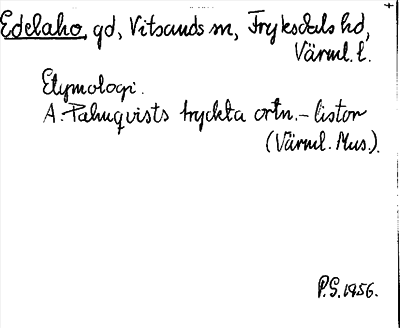 Edelaho, gd, Vitsands sn, Fryksdals hd,
Värml. l.
Etymologi.
A. Palmqvists tryckta ortn.-listor
(Värml. Mus.).
P.G. 1956.